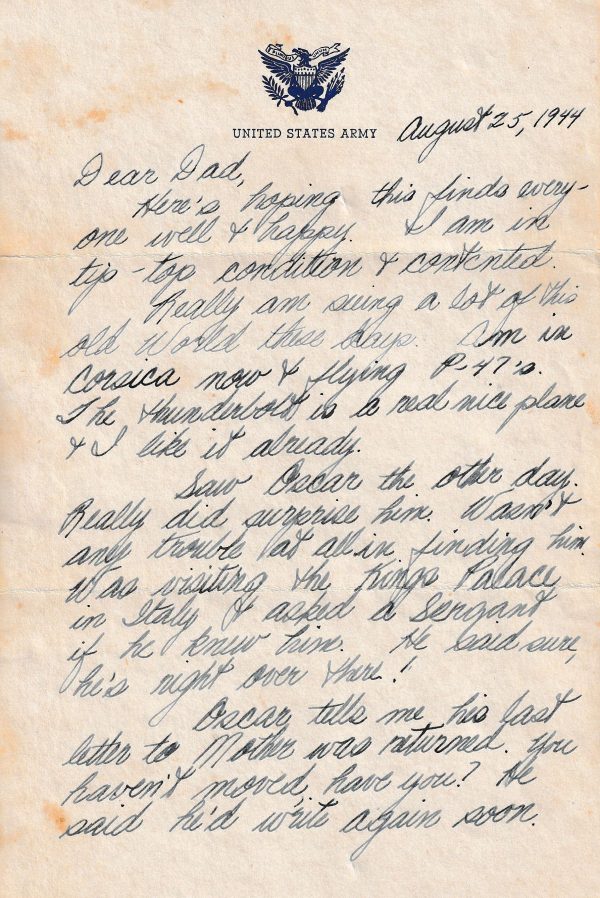 UNITED STATES ARMY
August 25, 1944
Dear Dad,
Here's hoping this finds every-
one well & happy. I am in
tip-top condition & contented.
Really am seeing a lot of this
old World these days. Am in
Corsica now & flying P-47's.
The thunderbolt is a real nice plane
& I like it already.
Saw Oscar the other day.
Really did surprise him. Wasn't
any trouble at all in finding him.
Was visiting the Kings Palace
in Italy & asked a Sergant
if he knew him. He said sure,
he's right over there!
Oscar tells me his last
letter to Mother was returned. You
haven't moved, have you? He
said he'd write again soon.